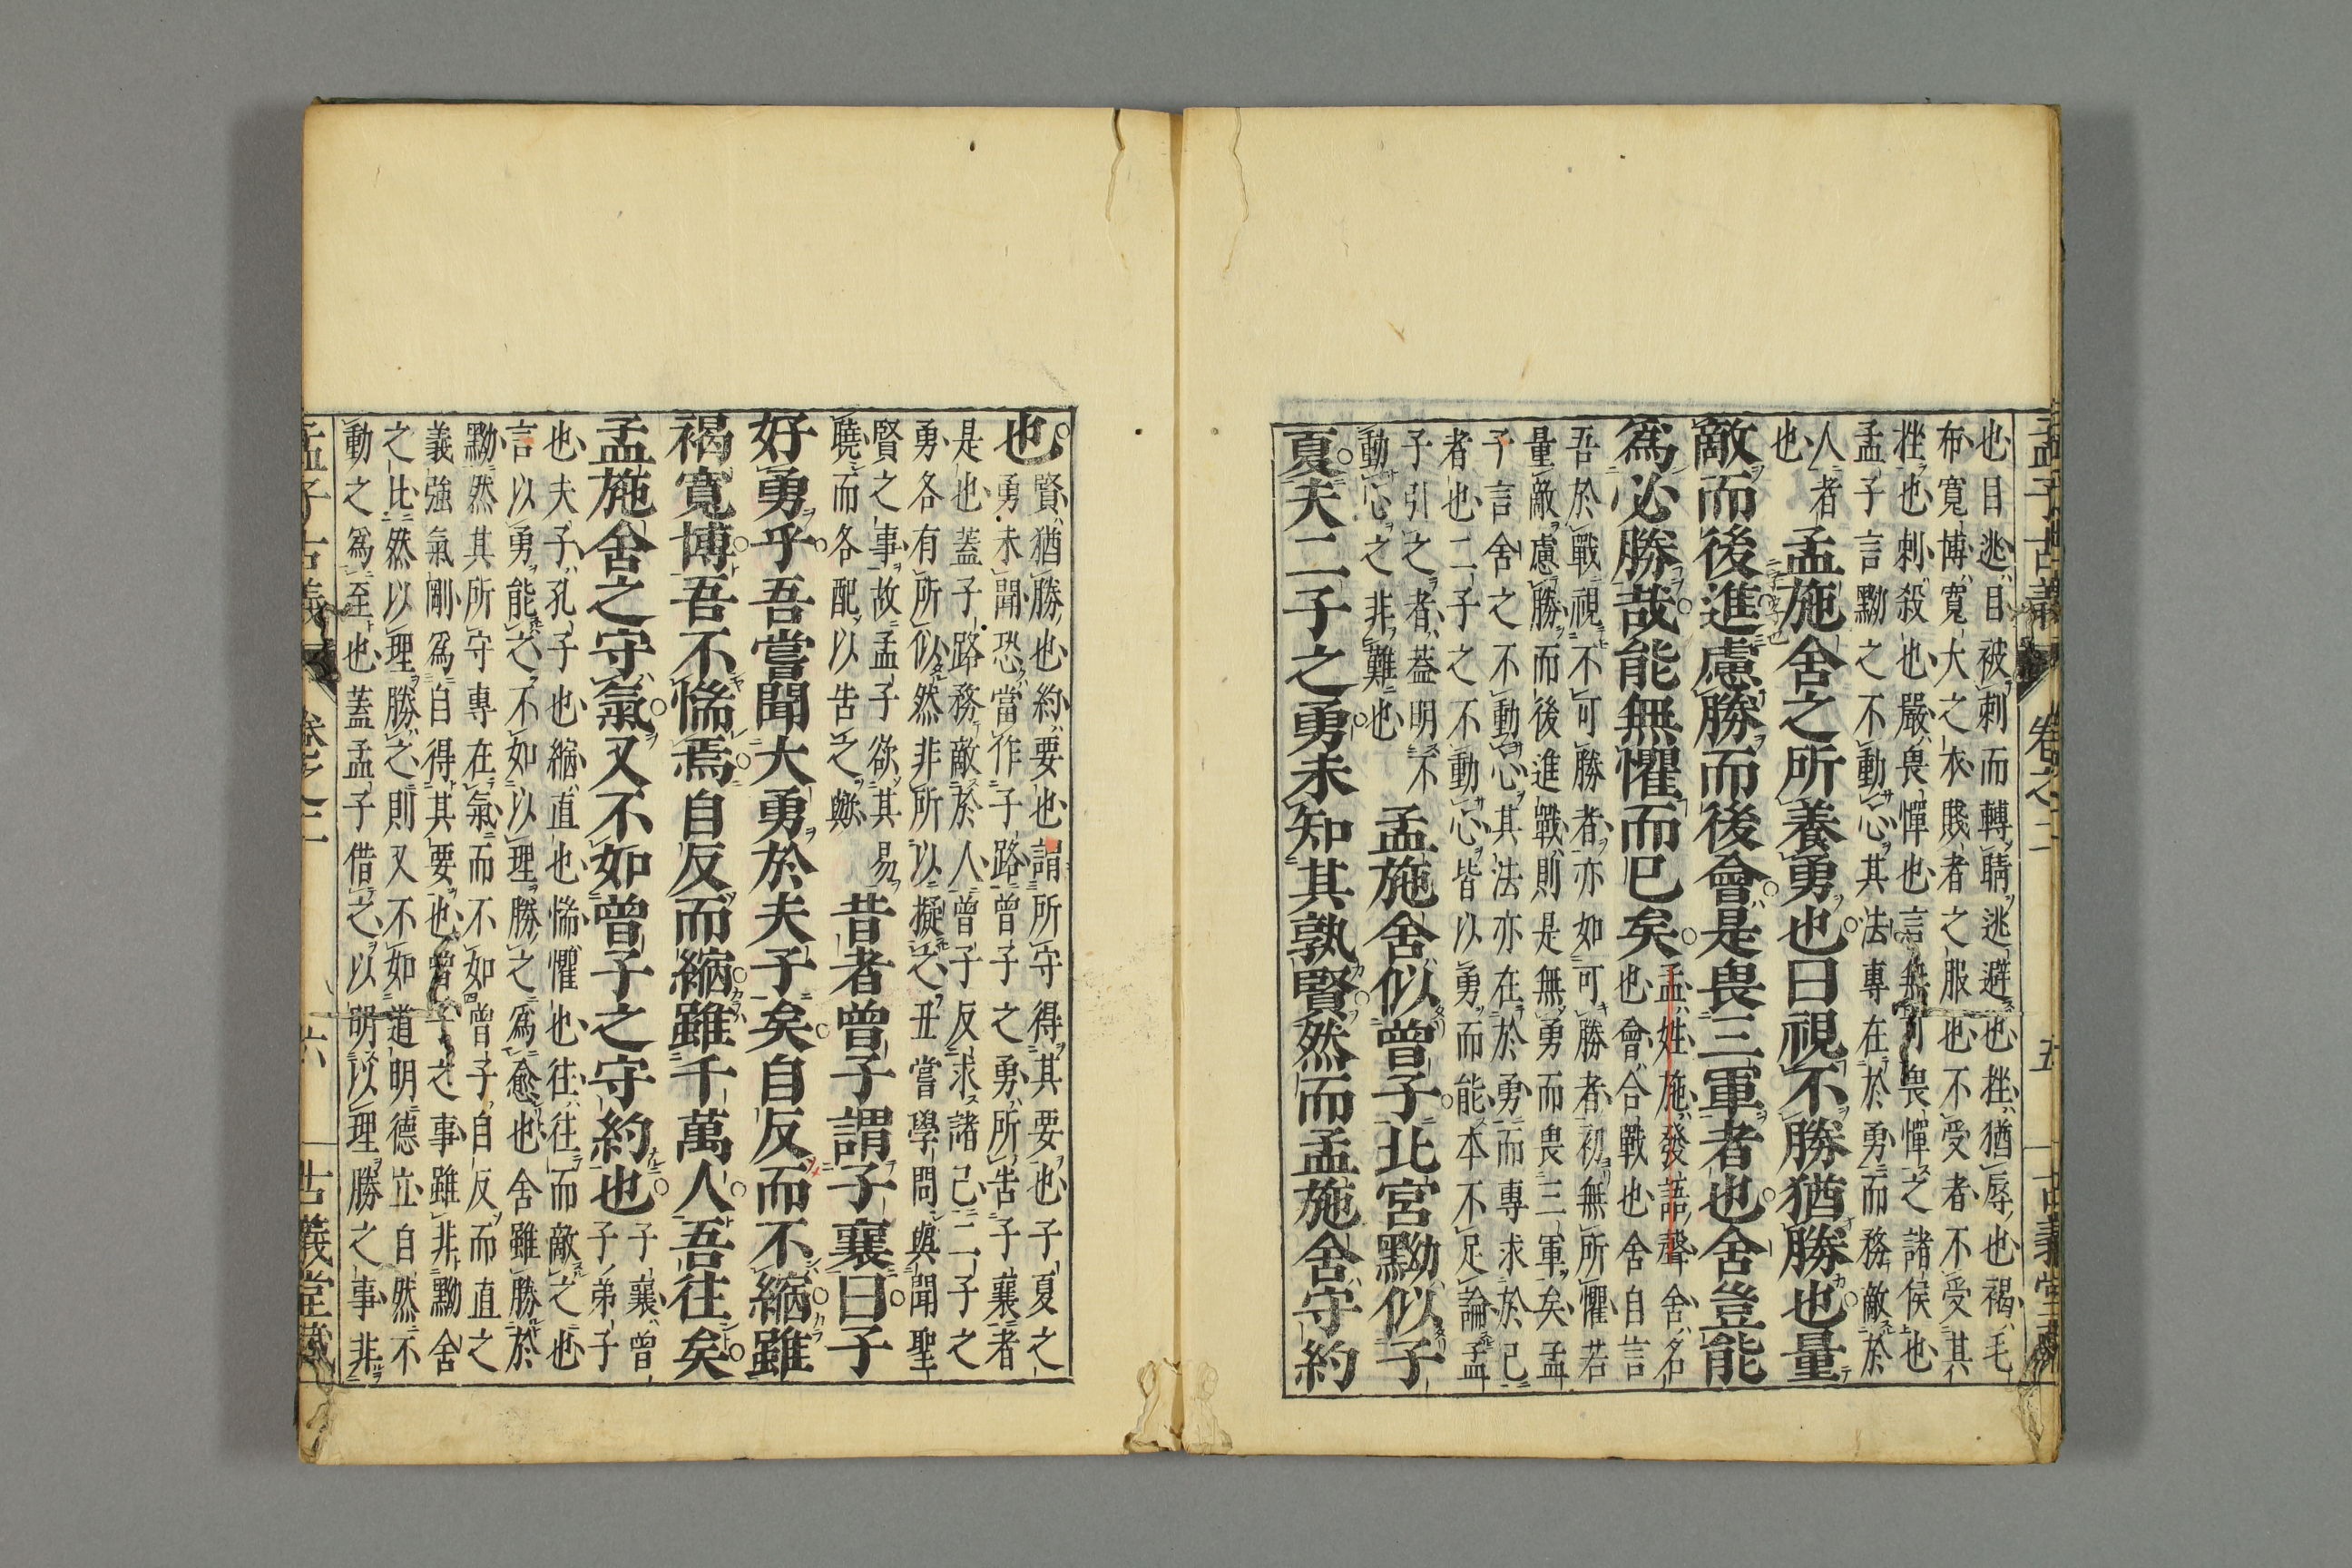 孟子古義 卷之二 五 古義堂藏
也目逃目被刺而轉睛逃避也挫猶辱也褐毛
布寬博寬大之衣賤者之服也不受者不受其
挫也刺殺也嚴畏憚也言無可畏憚之諸侯也
孟子言黝之不動心其法專在於勇而務敵於
人者
也
孟施舍之所養勇也曰視不勝猶勝也量
敵而後進慮勝而後會是畏三軍者也舍豈能
爲必勝哉能無懼而已矣
孟姓施發語聲舍名
也會合戰也舍自言
吾於戰視不可勝者亦如可勝者初無所懼若
量敵慮勝而後進戰則是無勇而畏三軍矣孟
子言舍之不動心其法亦在於勇而專求於己
者也二子之不動心皆以勇而能本不足論孟
子引之者蓋明不
動心之非難也
孟施舍似曾子北宮黝似子
夏夫二子之勇未知其孰賢然而孟施舍守約
也
賢猶勝也約要也謂所守得其要也子夏之
勇未聞恐當作子路曾子之勇所告子襄者
是也蓋子路務敵於人曾子反求諸己二子之
勇各有所似然非所以擬之丑嘗學問與聞聖
賢之事故孟子欲其易
曉而各配以告之歟
昔者曾子謂子襄曰子
好勇乎吾嘗聞大勇於夫子矣自反而不縮雖
褐寬博吾不惴焉自反而縮雖千萬人吾往矣
孟施舍之守氣又不如曾子之守約也
子襄曾
子弟子
也夫子孔子也縮直也惴懼也往往而敵之也
言以勇能之不如以理勝之爲愈也舍雖勝於
黝然其所守專在氣而不如曾子自反而直之
義強氣剛爲自得其要也曾子之事雖非黝舍
之比然以理勝之則又不如道明德立自然不
動之爲至也蓋孟子借之以明以理勝之事非
孟子古義 卷之二 六 古義堂藏